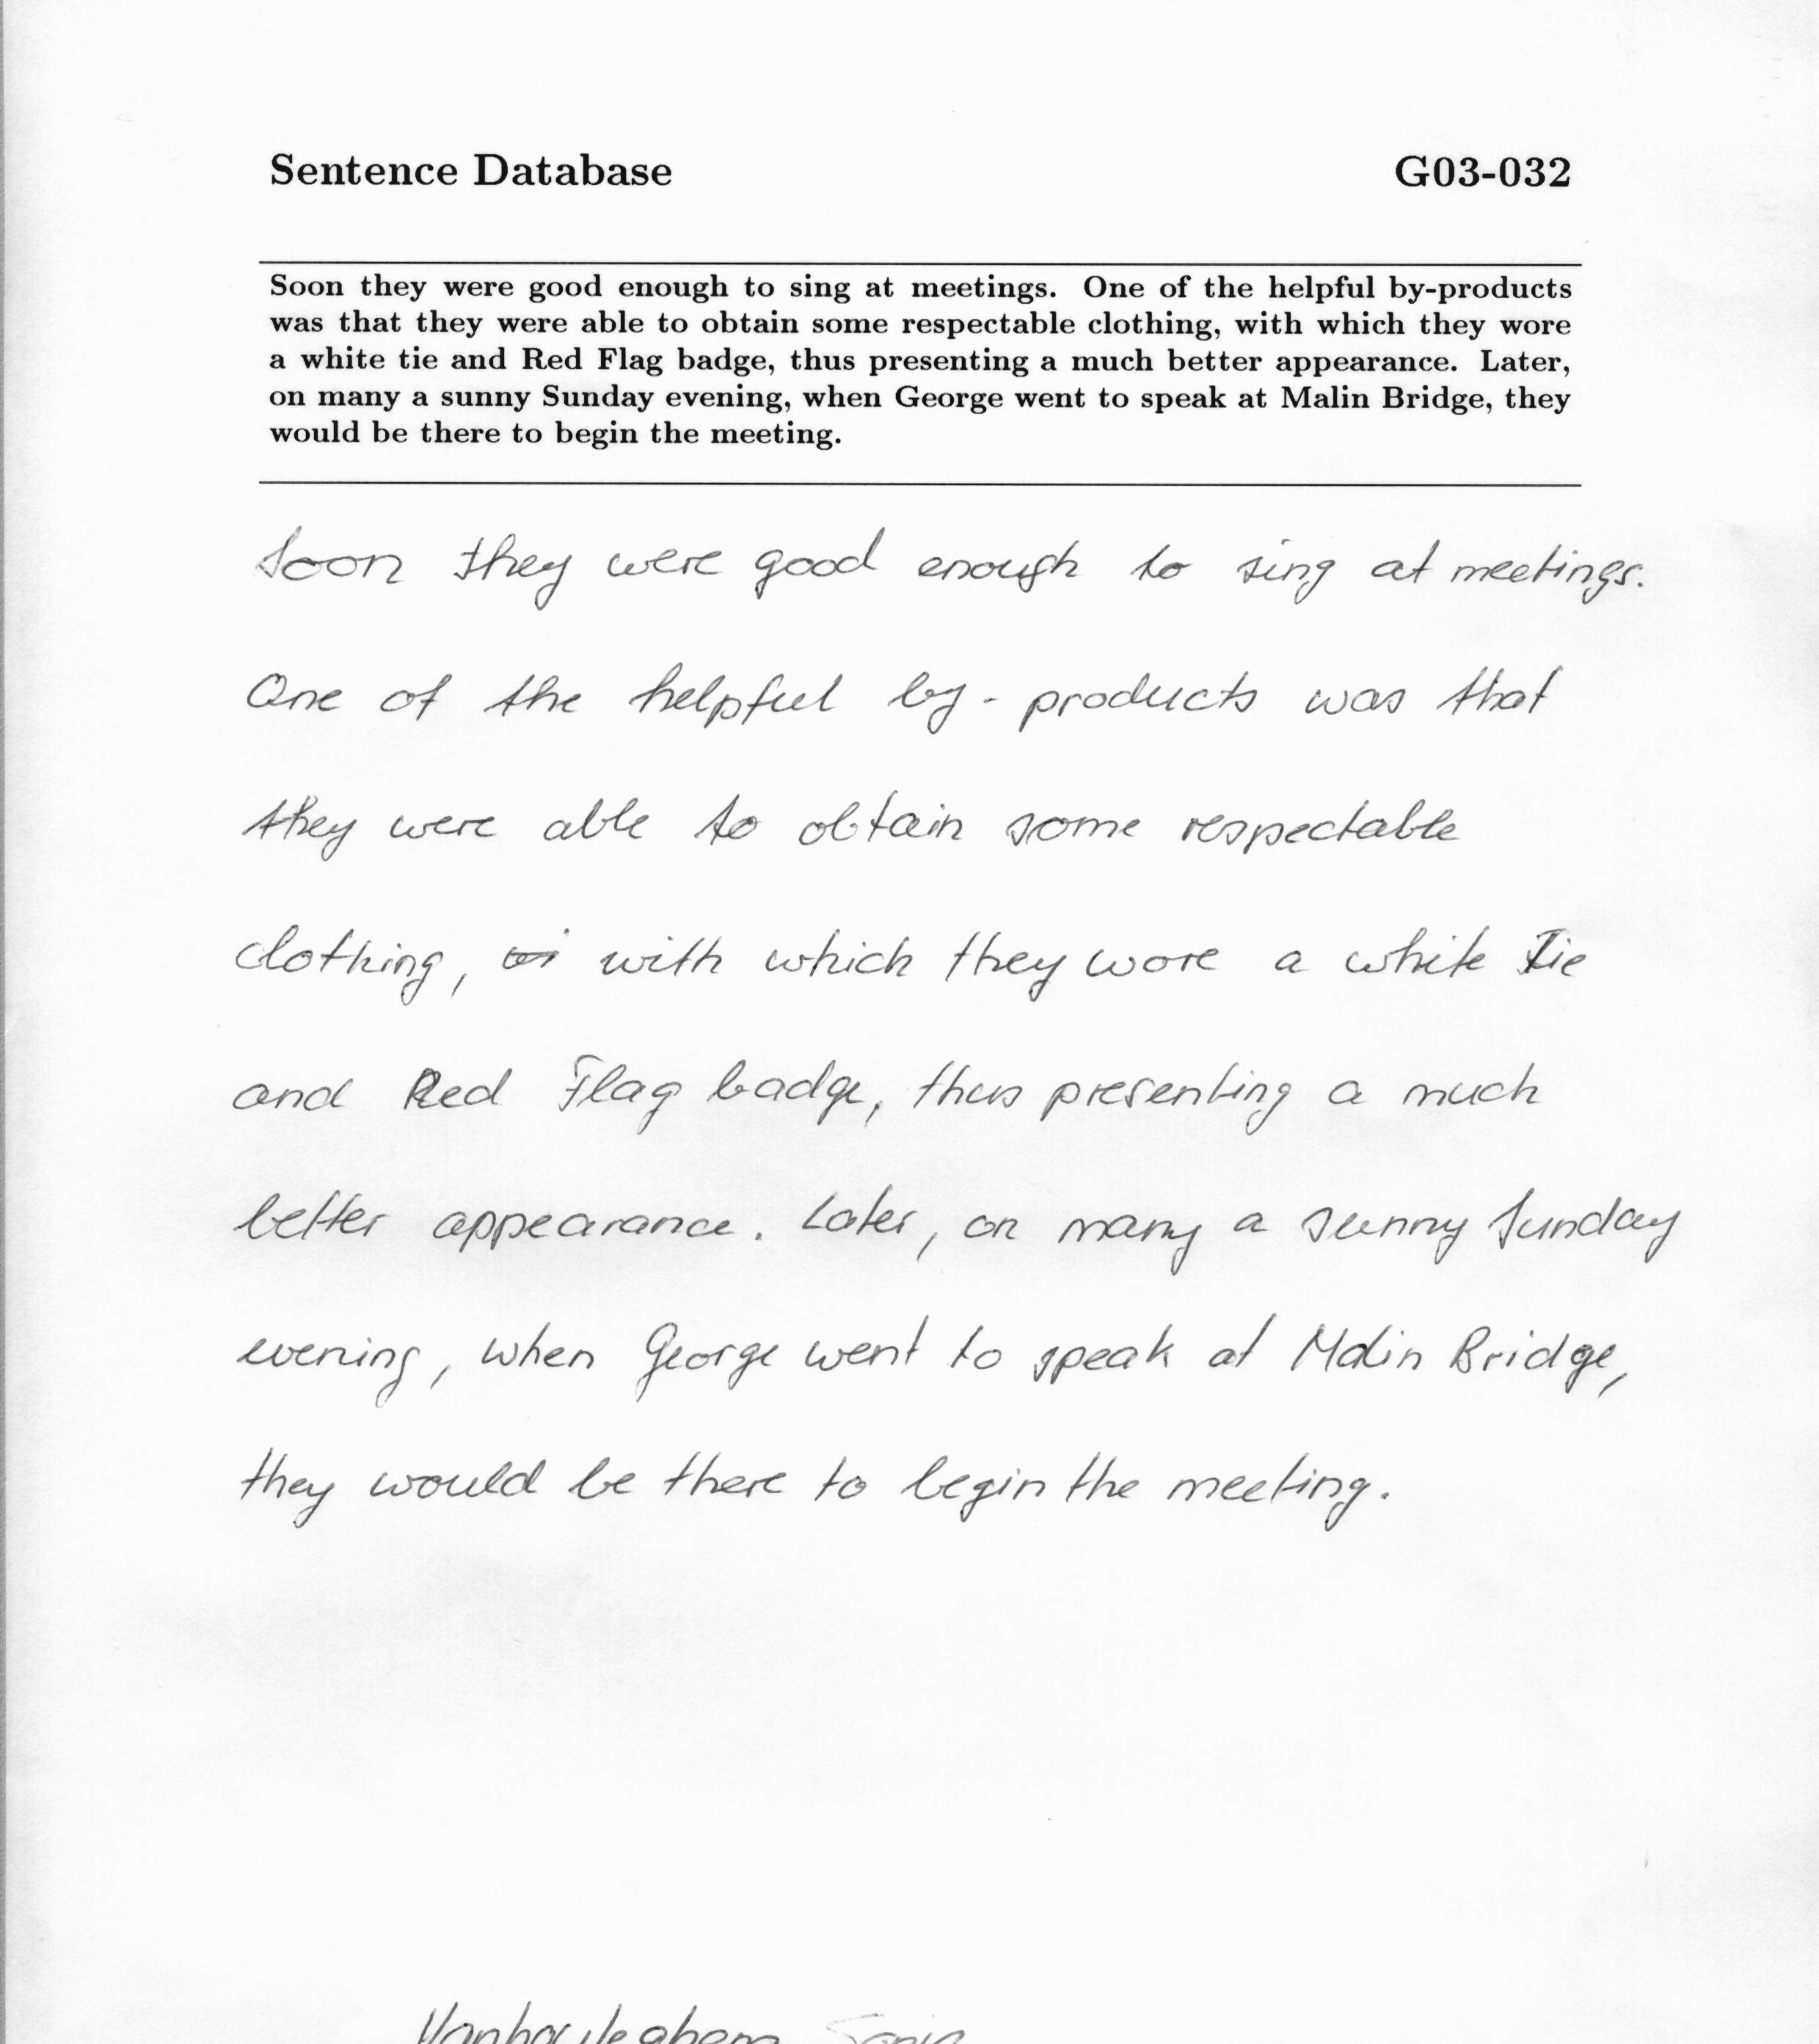 Sentence Database G03-032
Soon they were good enough to sing at meetings. One of the helpful by-products
was that they were able to obtain some respectable clothing, with which they wore
a white tie and Red Flag badge, thus presenting a much better appearance. Later,
on many a sunny Sunday evening, when George went to speak at Malin Bridge, they
would be there to begin the meeting.
Soon they were good enough to sing at meetings.
One of the helpful by-products was that
they were able to obtain some respectable
clothing, with which they wore a white tie
and Red Flag badge, thus presenting a much
better appearance. Later, on many a sunny Sunday
evening, when George went to speak at Malin Bridge,
they would be there to begin the meeting.